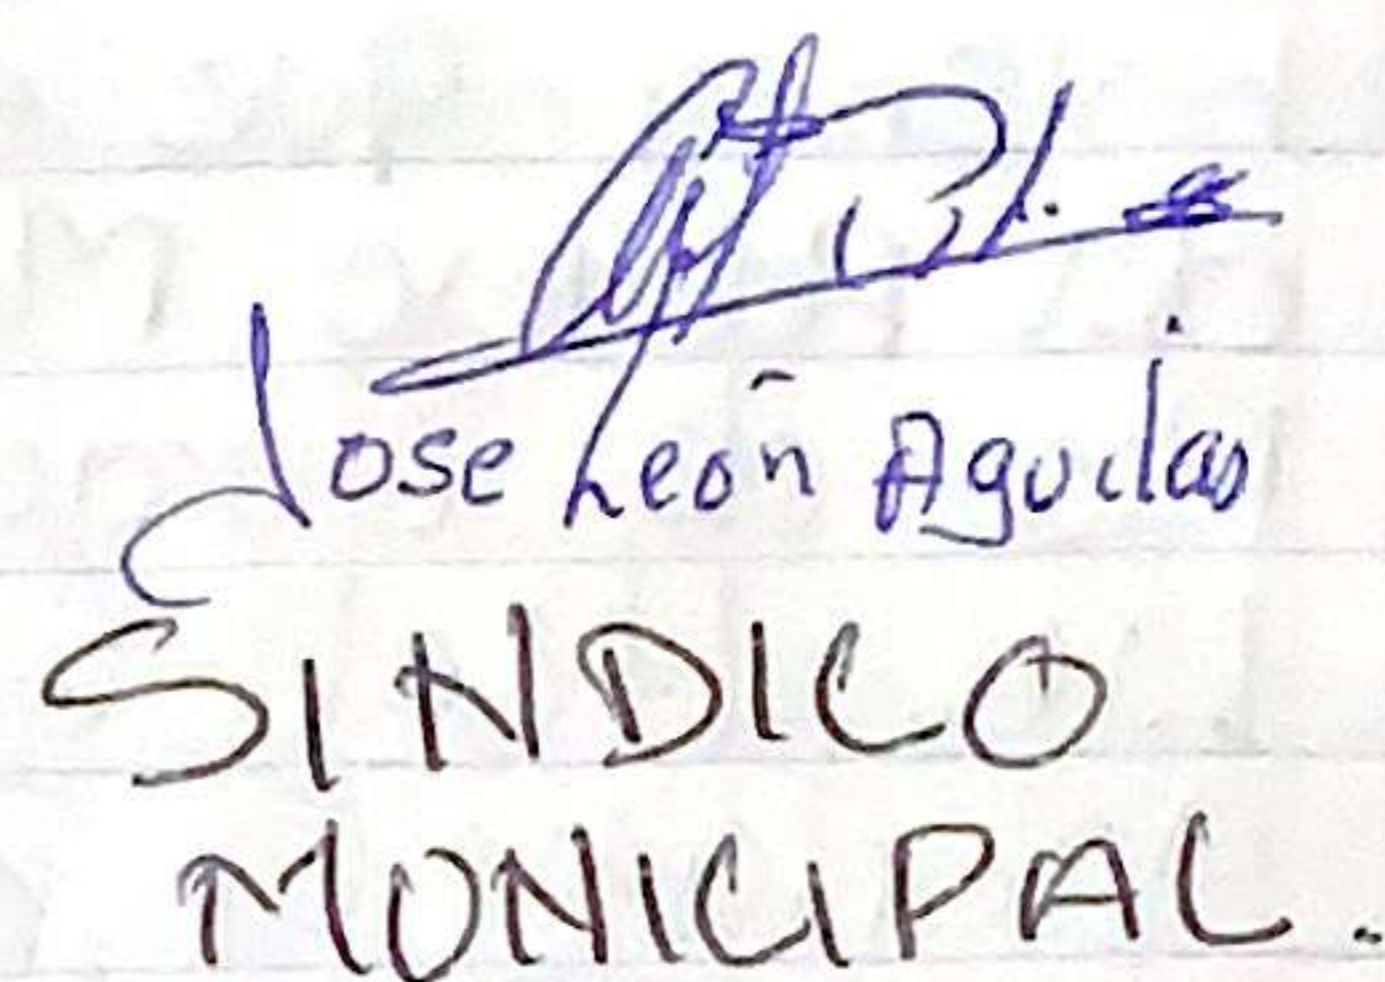 Jose León Aguilar
SINDICO
MUNICIPAL.